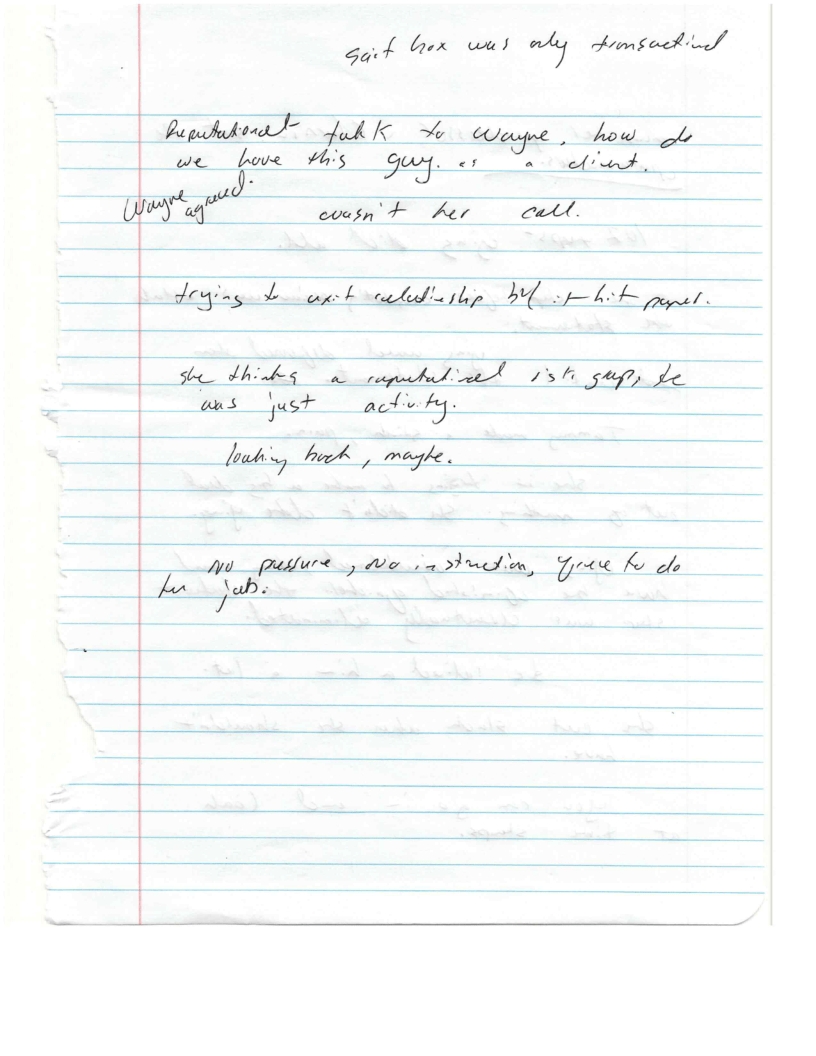 said box was only transactional
Reputational talk to Wayne, how do
we have this guy. as a client.
Wayne agreed.
wasn't her call.
trying to exit relationship b/f it hit paper.
she thinks a reputational risk group, he
was just activity.
looking back, maybe.
No pressure, no instruction, free to do
her job.